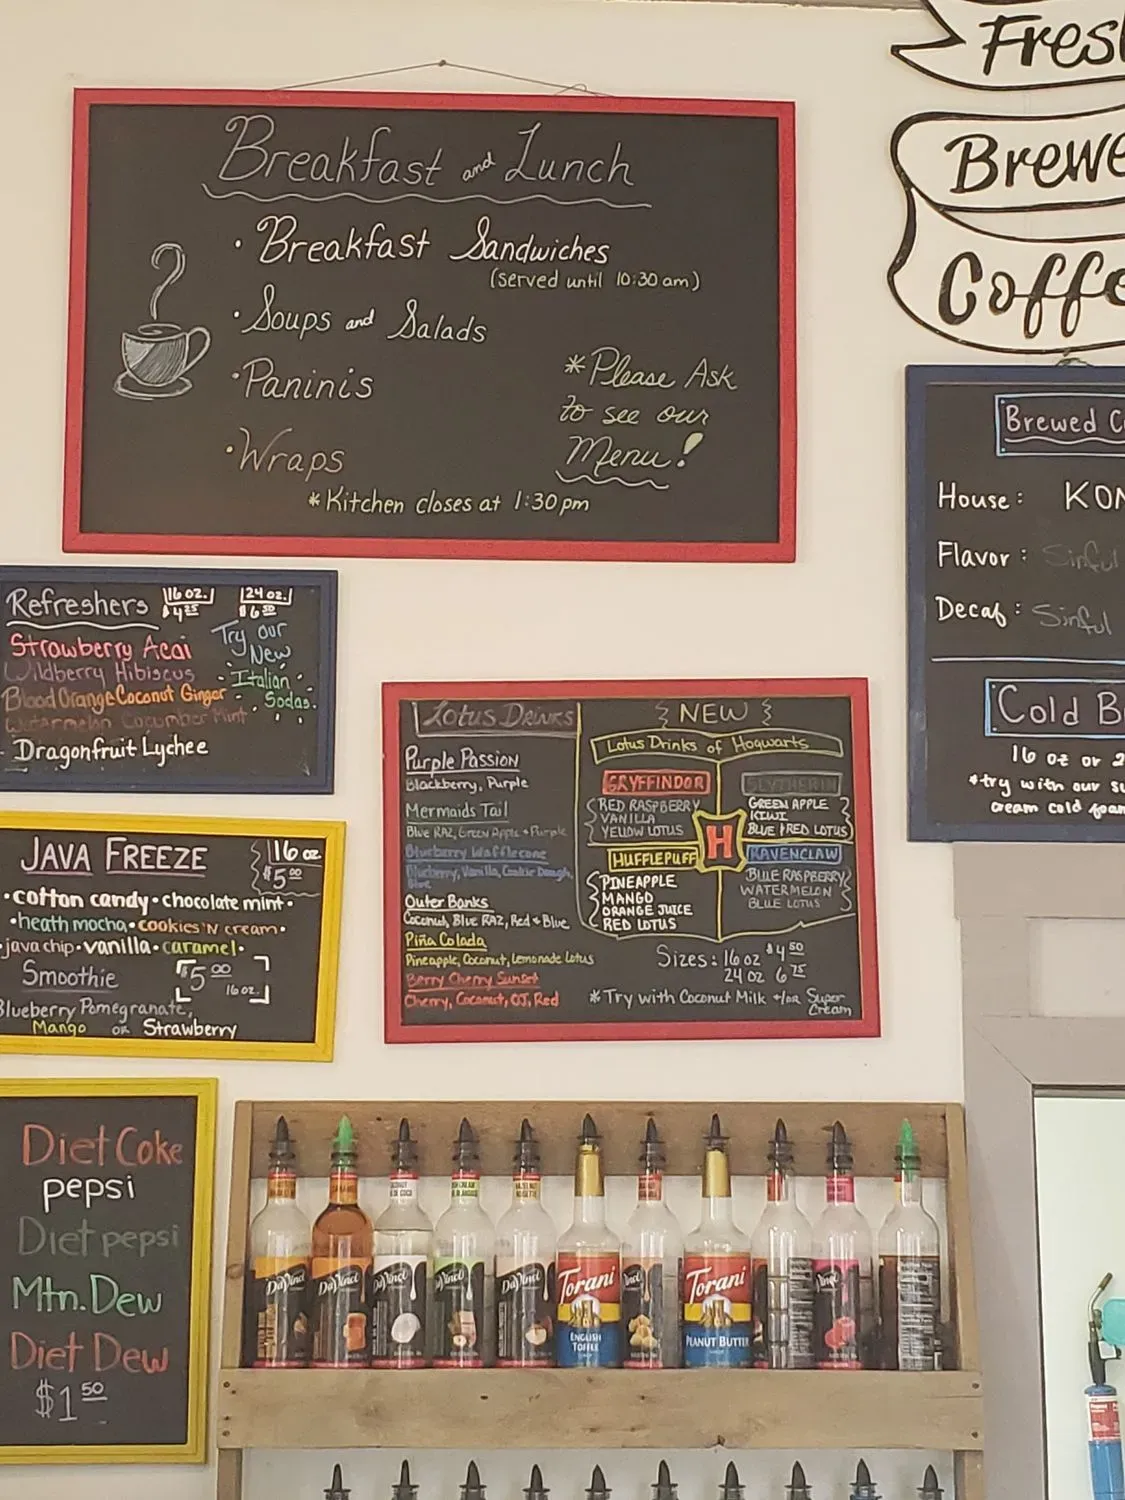 Fres
Brewe
Coffe
Breakfast and Lunch
• Breakfast Sandwiches
(served until 10:30 am)
• Soups and Salads
• Paninis
• Wraps
*Please Ask
to see our
Menu!
*Kitchen closes at 1:30 pm
Brewed C
House: KON
Flavor: Sinful
Decaf: Sinful
Cold B
16 oz or 2
*try with our su
cream cold foam
Refreshers 16 oz. 24 oz.
$4 25 $6 50
Strawberry Acai
Wildberry Hibiscus
Blood Orange Coconut Ginger
Watermelon Cucumber Mint
Dragonfruit Lychee
Try our
New
Italian
Sodas.
Lotus Drinks
Purple Passion
Blackberry, Purple
Mermaids Tail
Blue RAZ, Green Apple + Purple
Blueberry Wafflecone
Blueberry, Vanilla, Cookie Dough,
Blue
Outer Banks
Coconut, Blue RAZ, Red & Blue
Piña Colada
Pineapple, Coconut, Lemonade Lotus
Berry Cherry Sunset
Cherry, Coconut, OJ, Red
NEW
Lotus Drinks of Hogwarts
GRYFFINDOR
RED RASPBERRY
VANILLA
YELLOW LOTUS
SLYTHERIN
GREEN APPLE
KIWI
BLUE & RED LOTUS
H
HUFFLEPUFF
PINEAPPLE
MANGO
ORANGE JUICE
RED LOTUS
RAVENCLAW
BLUE RASPBERRY
WATERMELON
BLUE LOTUS
Sizes: 16 oz $4 50
24 oz 6 75
*Try with Coconut Milk +/or Super
Cream
JAVA FREEZE 16 oz
$5 00
•cotton candy•chocolate mint•
•heath mocha•cookies 'N cream•
•java chip•vanilla•caramel•
Smoothie $5 00
16 oz.
Blueberry Pomegranate,
Mango or Strawberry
Diet Coke
pepsi
Diet pepsi
Mtn. Dew
Diet Dew
$1 50
DaVinci
DaVinci
DaVinci
DaVinci
Torani
ENGLISH
TOFFEE
Torani
PEANUT BUTTER